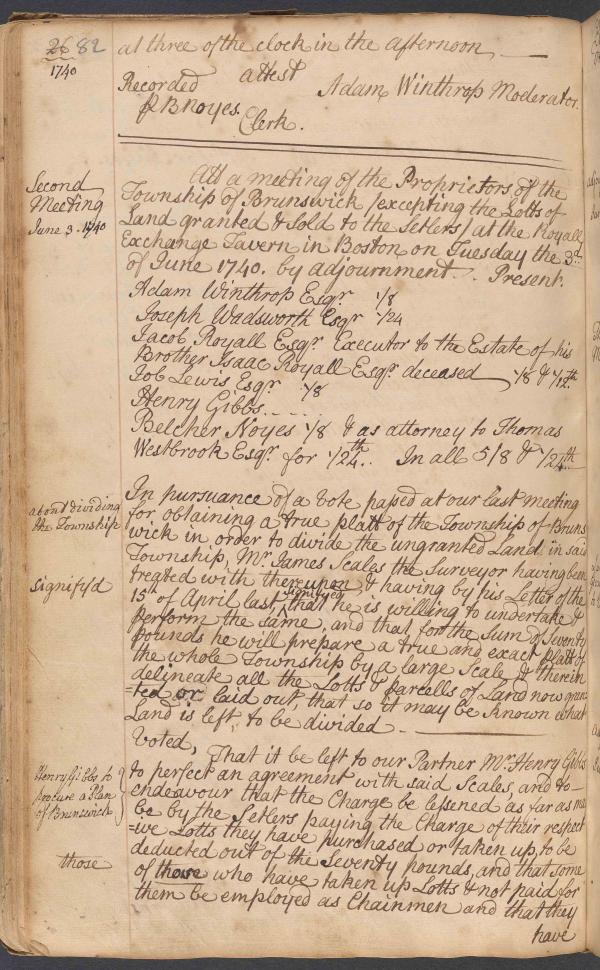 26 82
1740
at three of the clock in the afternoon
Recorded attest Adam Winthrop Moderator.
P BNoyes. Clerk.
Second
Meeting
June 3. 1740
Att a meeting of the Proprietors of the
Township of Brunswick /excepting the Lotts of
Land granted & Sold to the Setlers/ at the Royall
Exchange Tavern in Boston on Tuesday the 3d
of June 1740. by adjournment. Present.
Adam Winthrop Esqr. 1/8
Joseph Wadsworth Esqr 1/24
Jacob Royall Esqr. Executor to the Estate of his
Brother Isaac Royall Esqr. deceased 1/8 & 1/12th
Job Lewis Esqr 1/8
Henry Gibbs
Belcher Noyes 1/8 & as attorney to Thomas
Westbrook Esqr. for 1/24th.. In all 5/8 & 1/24th
about dividing
the Township
In pursuance of a Vote passed at our last meeting
for obtaining a true platt of the Township of Bruns
wick in order to divide the ungranted Land in said
Township, Mr. James Scales the Surveyor having been
treated with thereupon & having by his Letter of the
signify'd
15th of April last, signifyed that he is willing to undertake &
perform the same, and that for the Sum of Seventy
pounds he will prepare a true and exact Platt of
the whole Township by a large Scale & therein
delineate all the Lotts & parcells of Land now gran
=ted or laid out, that so it may be Known what
Land is left to be divided
Voted, That it be left to our Partner Mr. Henry Gibbs
Henry Gibbs to
procure a Plan
of Brunswick
to perfect an agreement with said Scales, and to
endeavour that the Charge be lessened as far as may
be by the Setlers paying the Charge of their respect
=ive Lotts they have purchased or taken up, to be
deducted out of the Seventy pounds, and that some
those
of those who have taken up Lotts & not paid for
them be employed as Chainmen and that they
have